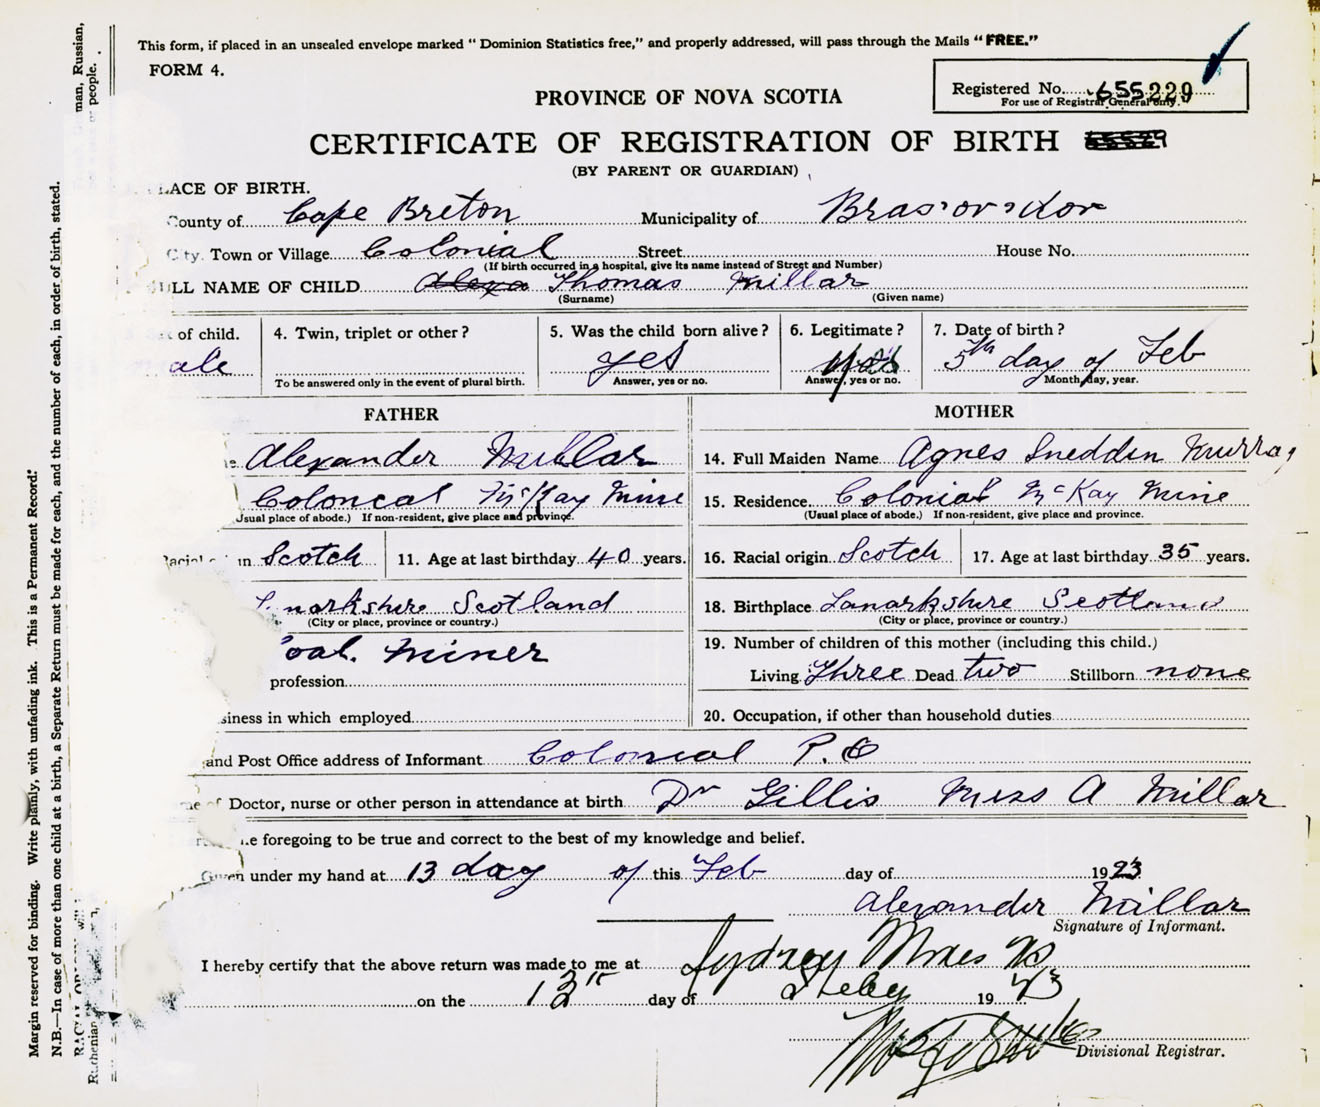 This form, if placed in an unsealed envelope marked "Dominion Statistics free," and properly addressed, will pass through the Mails "FREE."
FORM 4.
Registered No. 655229
For use of Registrar General only.
PROVINCE OF NOVA SCOTIA
CERTIFICATE OF REGISTRATION OF BIRTH
(BY PARENT OR GUARDIAN)
LACE OF BIRTH.
County of Cape Breton Municipality of
ty. Town or Village Colonial Street House No.
(If birth occurred in a hospital, give its name instead of Street and Number)
ULL NAME OF CHILD Thomas Millar
(Surname) (Given name)
of child. 4. Twin, triplet or other? 5. Was the child born alive? 6. Legitimate? 7. Date of birth?
ale yes yes 5th day of Feb
To be answered only in the event of plural birth. Answer, yes or no. Answer, yes or no. Month, day, year.
FATHER MOTHER
Alexander Millar 14. Full Maiden Name Agnes Sneddin Murray
Colonial McKay Mine 15. Residence Colonial McKay Mine
Usual place of abode.) If non-resident, give place and province. (Usual place of abode.) If non-resident, give place and province.
Racial in Scotch 11. Age at last birthday 40 years. 16. Racial origin Scotch 17. Age at last birthday 35 years.
narkshire Scotland 18. Birthplace Lanarkshire Scotland
(City or place, province or country.) (City or place, province or country.)
oal. Miner 19. Number of children of this mother (including this child.)
profession Living Three Dead two Stillborn none
siness in which employed 20. Occupation, if other than household duties
and Post Office address of Informant Colonial P.O
of Doctor, nurse or other person in attendance at birth Dr Gillis Miss A Millar
e foregoing to be true and correct to the best of my knowledge and belief.
Given under my hand at 13 day of this Feb day of 1923
Alexander Millar
Signature of Informant.
I hereby certify that the above return was made to me at Sydney Mines NS
on the 13th day of Feby 1923
Divisional Registrar.
Margin reserved for binding. Write plainly, with unfading ink. This is a Permanent Record.
N.B.—In case of more than one child at a birth, a Separate Return must be made for each, and the number of each, in order of birth, stated.
man, Russian,
people.